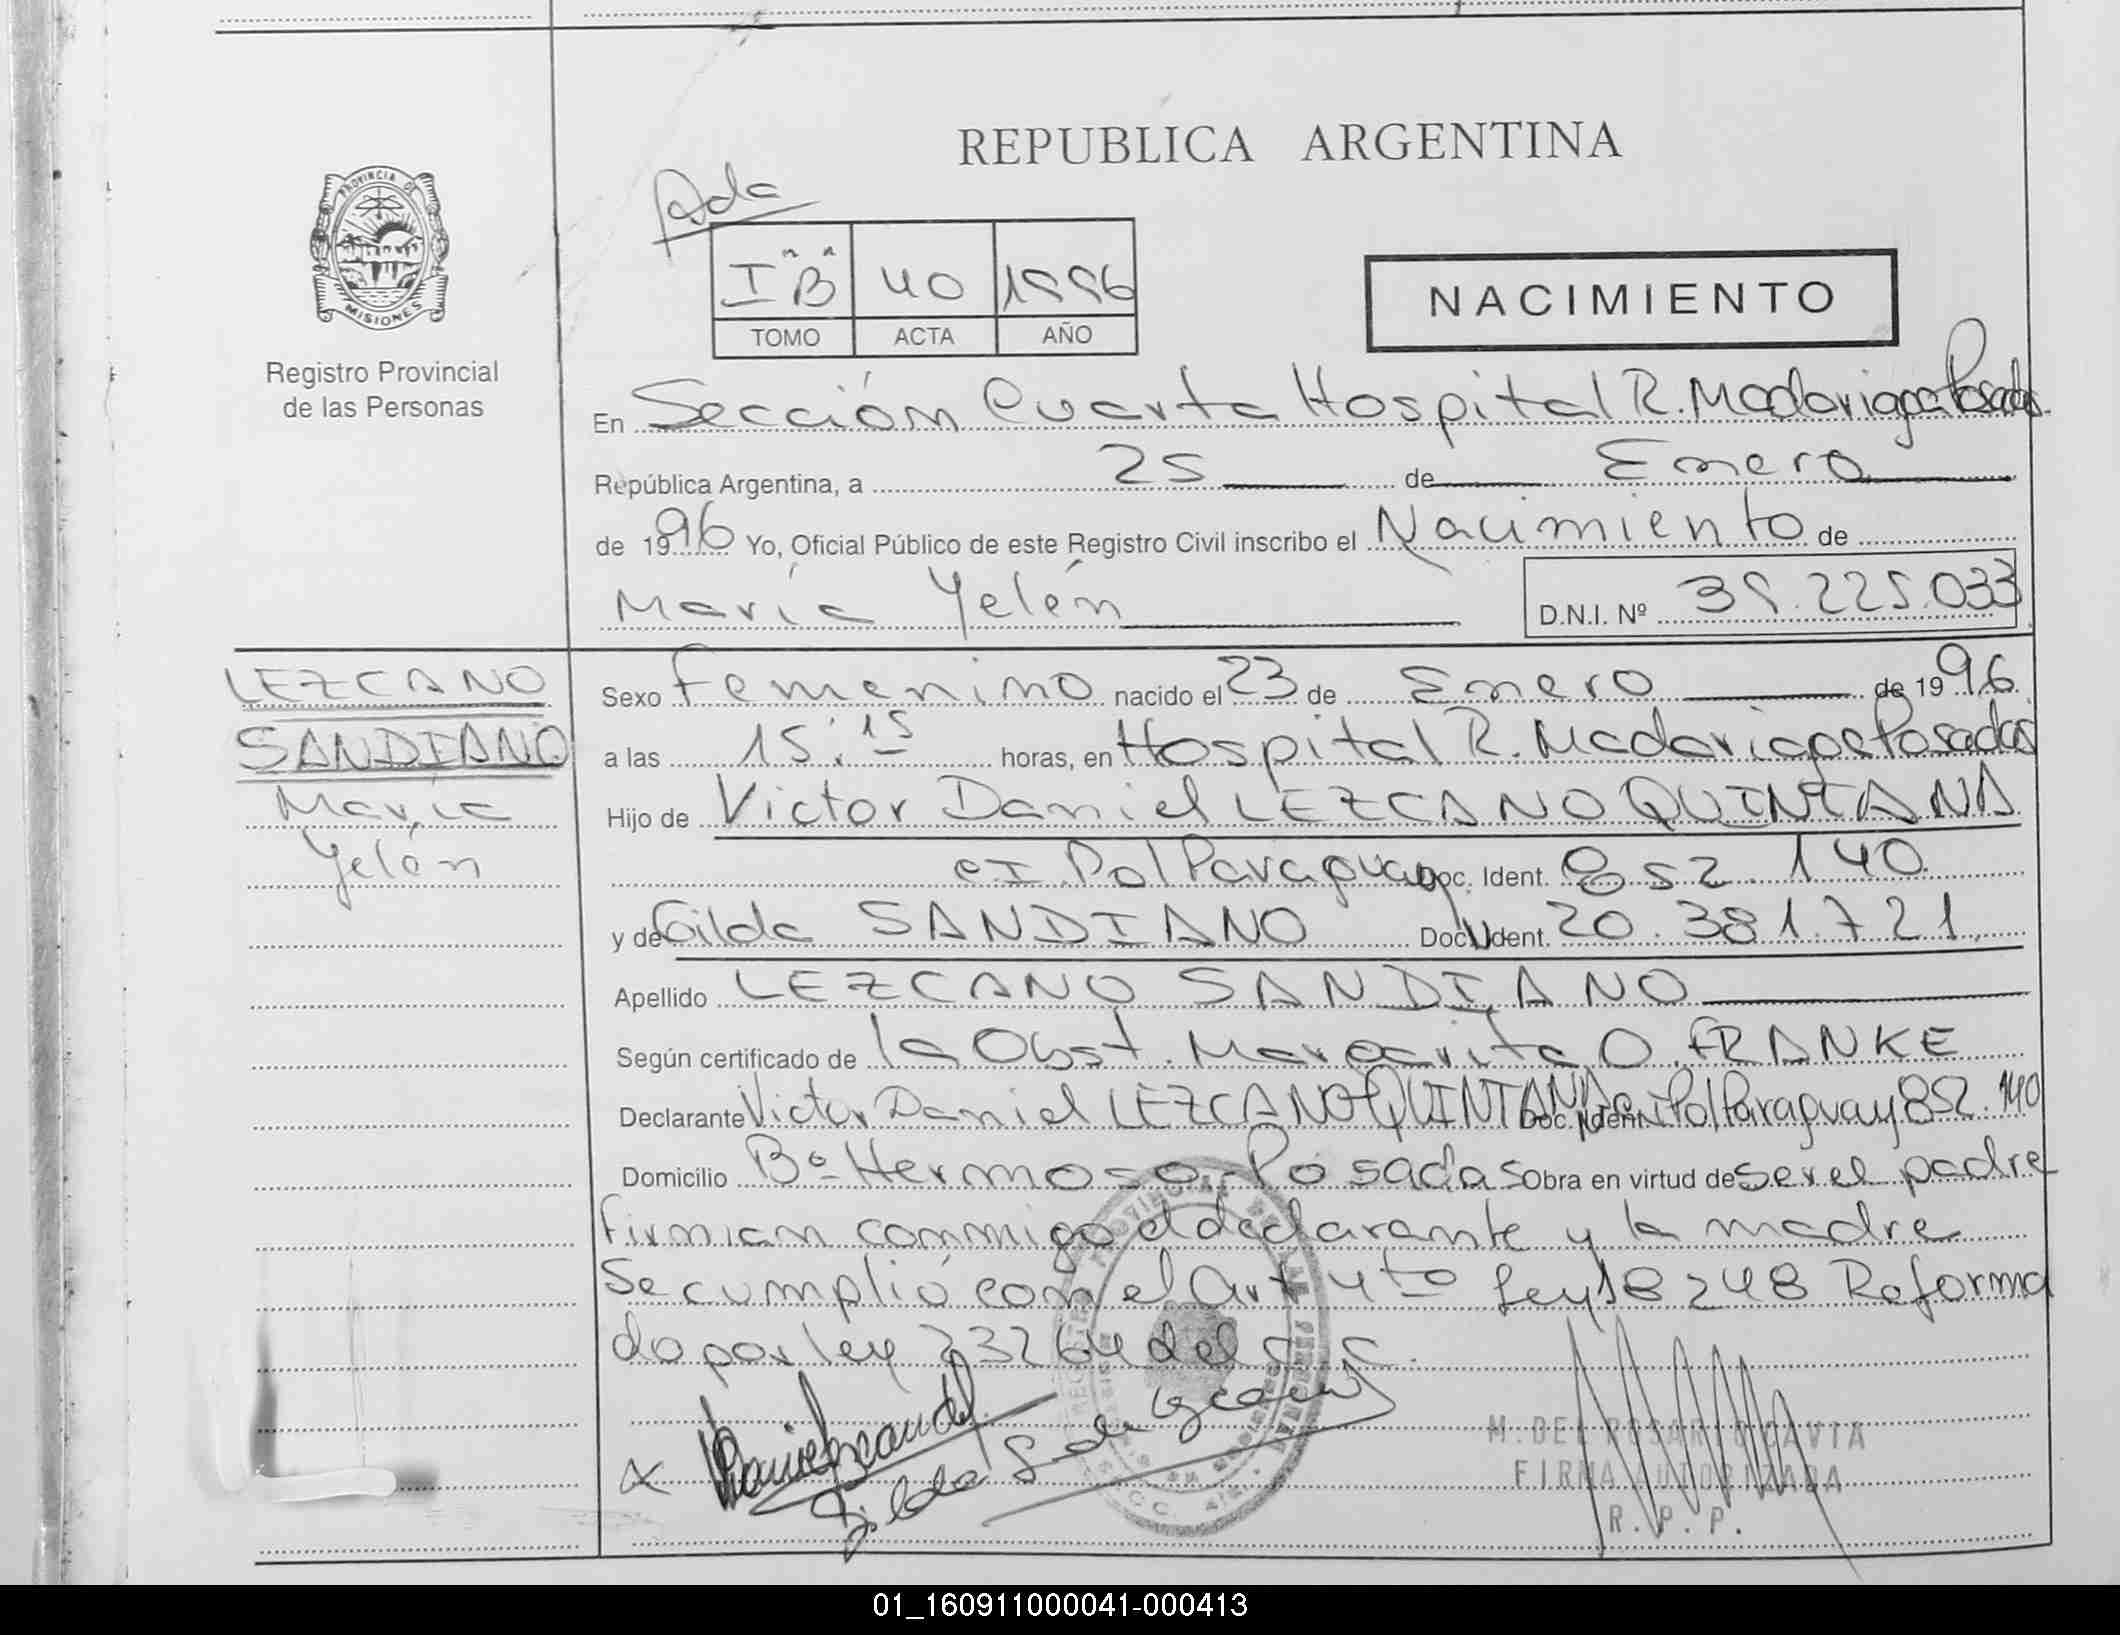 REPUBLICA ARGENTINA
PROVINCIA DE
MISIONES
Registro Provincial
de las Personas
Ada
I "B" 40 1996
TOMO ACTA AÑO
NACIMIENTO
En Sección Cuarta Hospital R. Madariaga Posadas
República Argentina, a 25 de Enero
de 1996 Yo, Oficial Público de este Registro Civil inscribo el Nacimiento de
María Yelén D.N.I. Nº 39.225.033
LEZCANO
SANDIANO
María
Yelén
Sexo Femenino nacido el 23 de Enero de 1996
a las 15:15 horas, en Hospital R. Madariaga Posadas
Hijo de Victor Daniel LEZCANO QUINTANA
C.I. Pol Paraguay Doc. Ident. 852.140
y de Gilda SANDIANO Doc. Ident. 20.381.721
Apellido LEZCANO SANDIANO
Según certificado de la Obst. Margarita O. FRANKE
Declarante Victor Daniel LEZCANO QUINTANA Doc. Ident. C.I. Pol Paraguay 852.140
Domicilio Bº Hermoso-Posadas Obra en virtud de ser el padre
Firman conmigo el declarante y la madre
Se cumplió con el Art 4to Ley 18248 Reforma
do por ley 23264 del C.C.
Gilda S de Lezcano
M. DEL ROSARIO CAVIA
FIRMA AUTORIZADA
R. P. P.
01_160911000041-000413